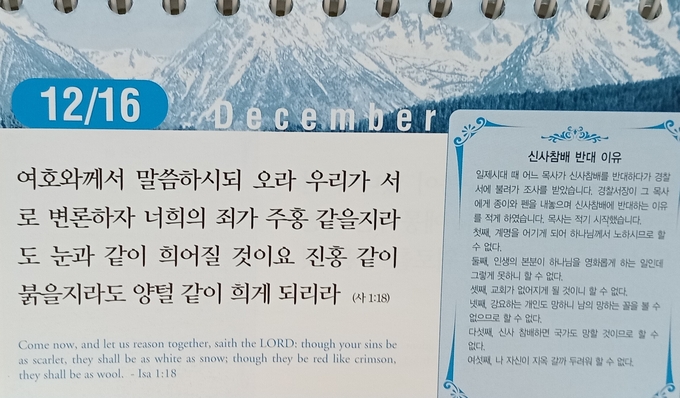 12/16
December
여호와께서 말씀하시되 오라 우리가 서
로 변론하자 너희의 죄가 주홍 같을지라
도 눈과 같이 희어질 것이요 진홍 같이
붉을지라도 양털 같이 희게 되리라 (사 1:18)
Come now, and let us reason together, saith the LORD: though your sins be
as scarlet, they shall be as white as snow; though they be red like crimson,
they shall be as wool. - Isa 1:18
신사참배 반대 이유
일제시대 때 어느 목사가 신사참배를 반대하다가 경찰
서에 불려가 조사를 받았습니다. 경찰서장이 그 목사
에게 종이와 펜을 내놓으며 신사참배에 반대하는 이유
를 적게 하였습니다. 목사는 적기 시작했습니다.
첫째, 계명을 어기게 되어 하나님께서 노하시므로 할
수 없다.
둘째, 인생의 본분이 하나님을 영화롭게 하는 일인데
그렇게 못하니 할 수 없다.
셋째, 교회가 없어지게 될 것이니 할 수 없다.
넷째, 강요하는 개인도 망하니 남의 망하는 꼴을 볼 수
없으므로 할 수 없다.
다섯째, 신사 참배하면 국가도 망할 것이므로 할 수
없다.
여섯째, 나 자신이 지옥 갈까 두려워 할 수 없다.